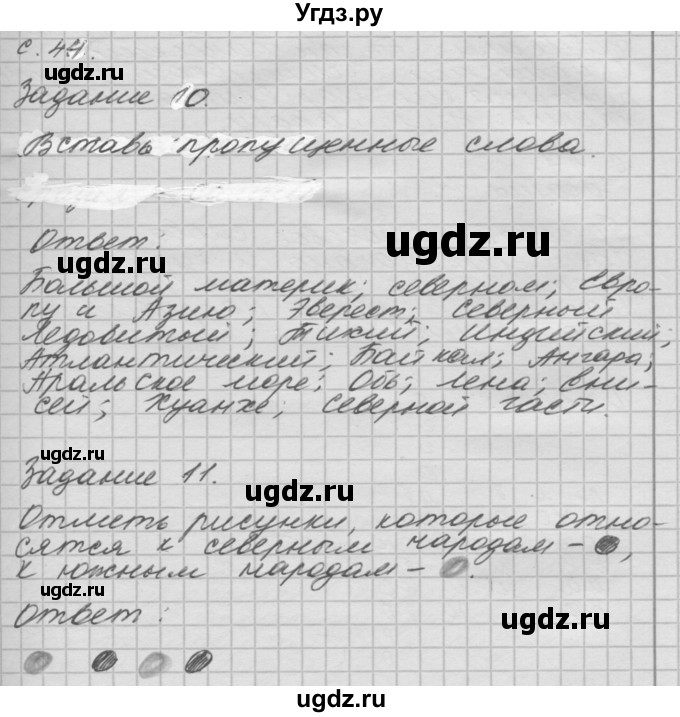 Угдз.ру
с. 44.
ugdz.ru
ugdz.ru
Задание 10.
Вставь пропущенные слова.
Ответ:
ugdz.ru
ugdz.ru
Большой материк; северном; Евро-
пу и Азию; Эверест; Северный
Ледовитый; Тихий; Индийский;
Атлантический; Байкал; Ангара;
Аральское море; Обь; Лена; Ени-
сей; Хуанхе; Северной части.
ugdz.ru
Задание 11.
ugdz.ru
Отметь рисунки, которые отно-
сятся к северным народам - ,
к южным народам - .
ugdz.ru
ugdz.ru
Ответ:
ugdz.ru
ugdz.ru